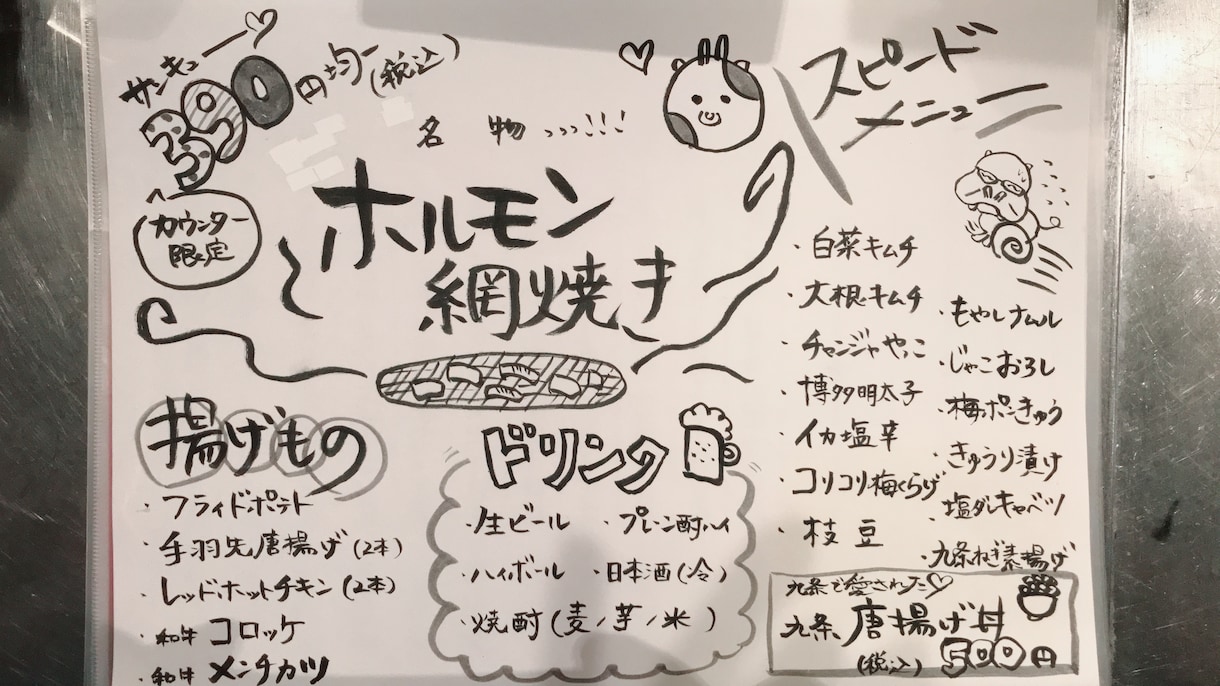 サンキュー♡
390円均一(税込)
カウンター
限定
名物、、、!!!
ホルモン
網焼き
スピード
メニュー
・白菜キムチ
・大根キムチ
・チャンジャやっこ
・博多明太子
・イカ塩辛
・コリコリ梅くらげ
・枝豆
・もやしナムル
・じゃこおろし
・梅ポンきゅう
・きゅうり漬け
・塩ダレキャベツ
・九条ねぎ素揚げ
揚げもの
・フライドポテト
・手羽先唐揚げ(2本)
・レッドホットチキン(2本)
・和牛コロッケ
・和牛メンチカツ
ドリンク
・生ビール ・プレーン酎ハイ
・ハイボール ・日本酒(冷)
・焼酎(麦/芋/米)
九条で愛された♡
九条、唐揚げ丼
(税込)500円